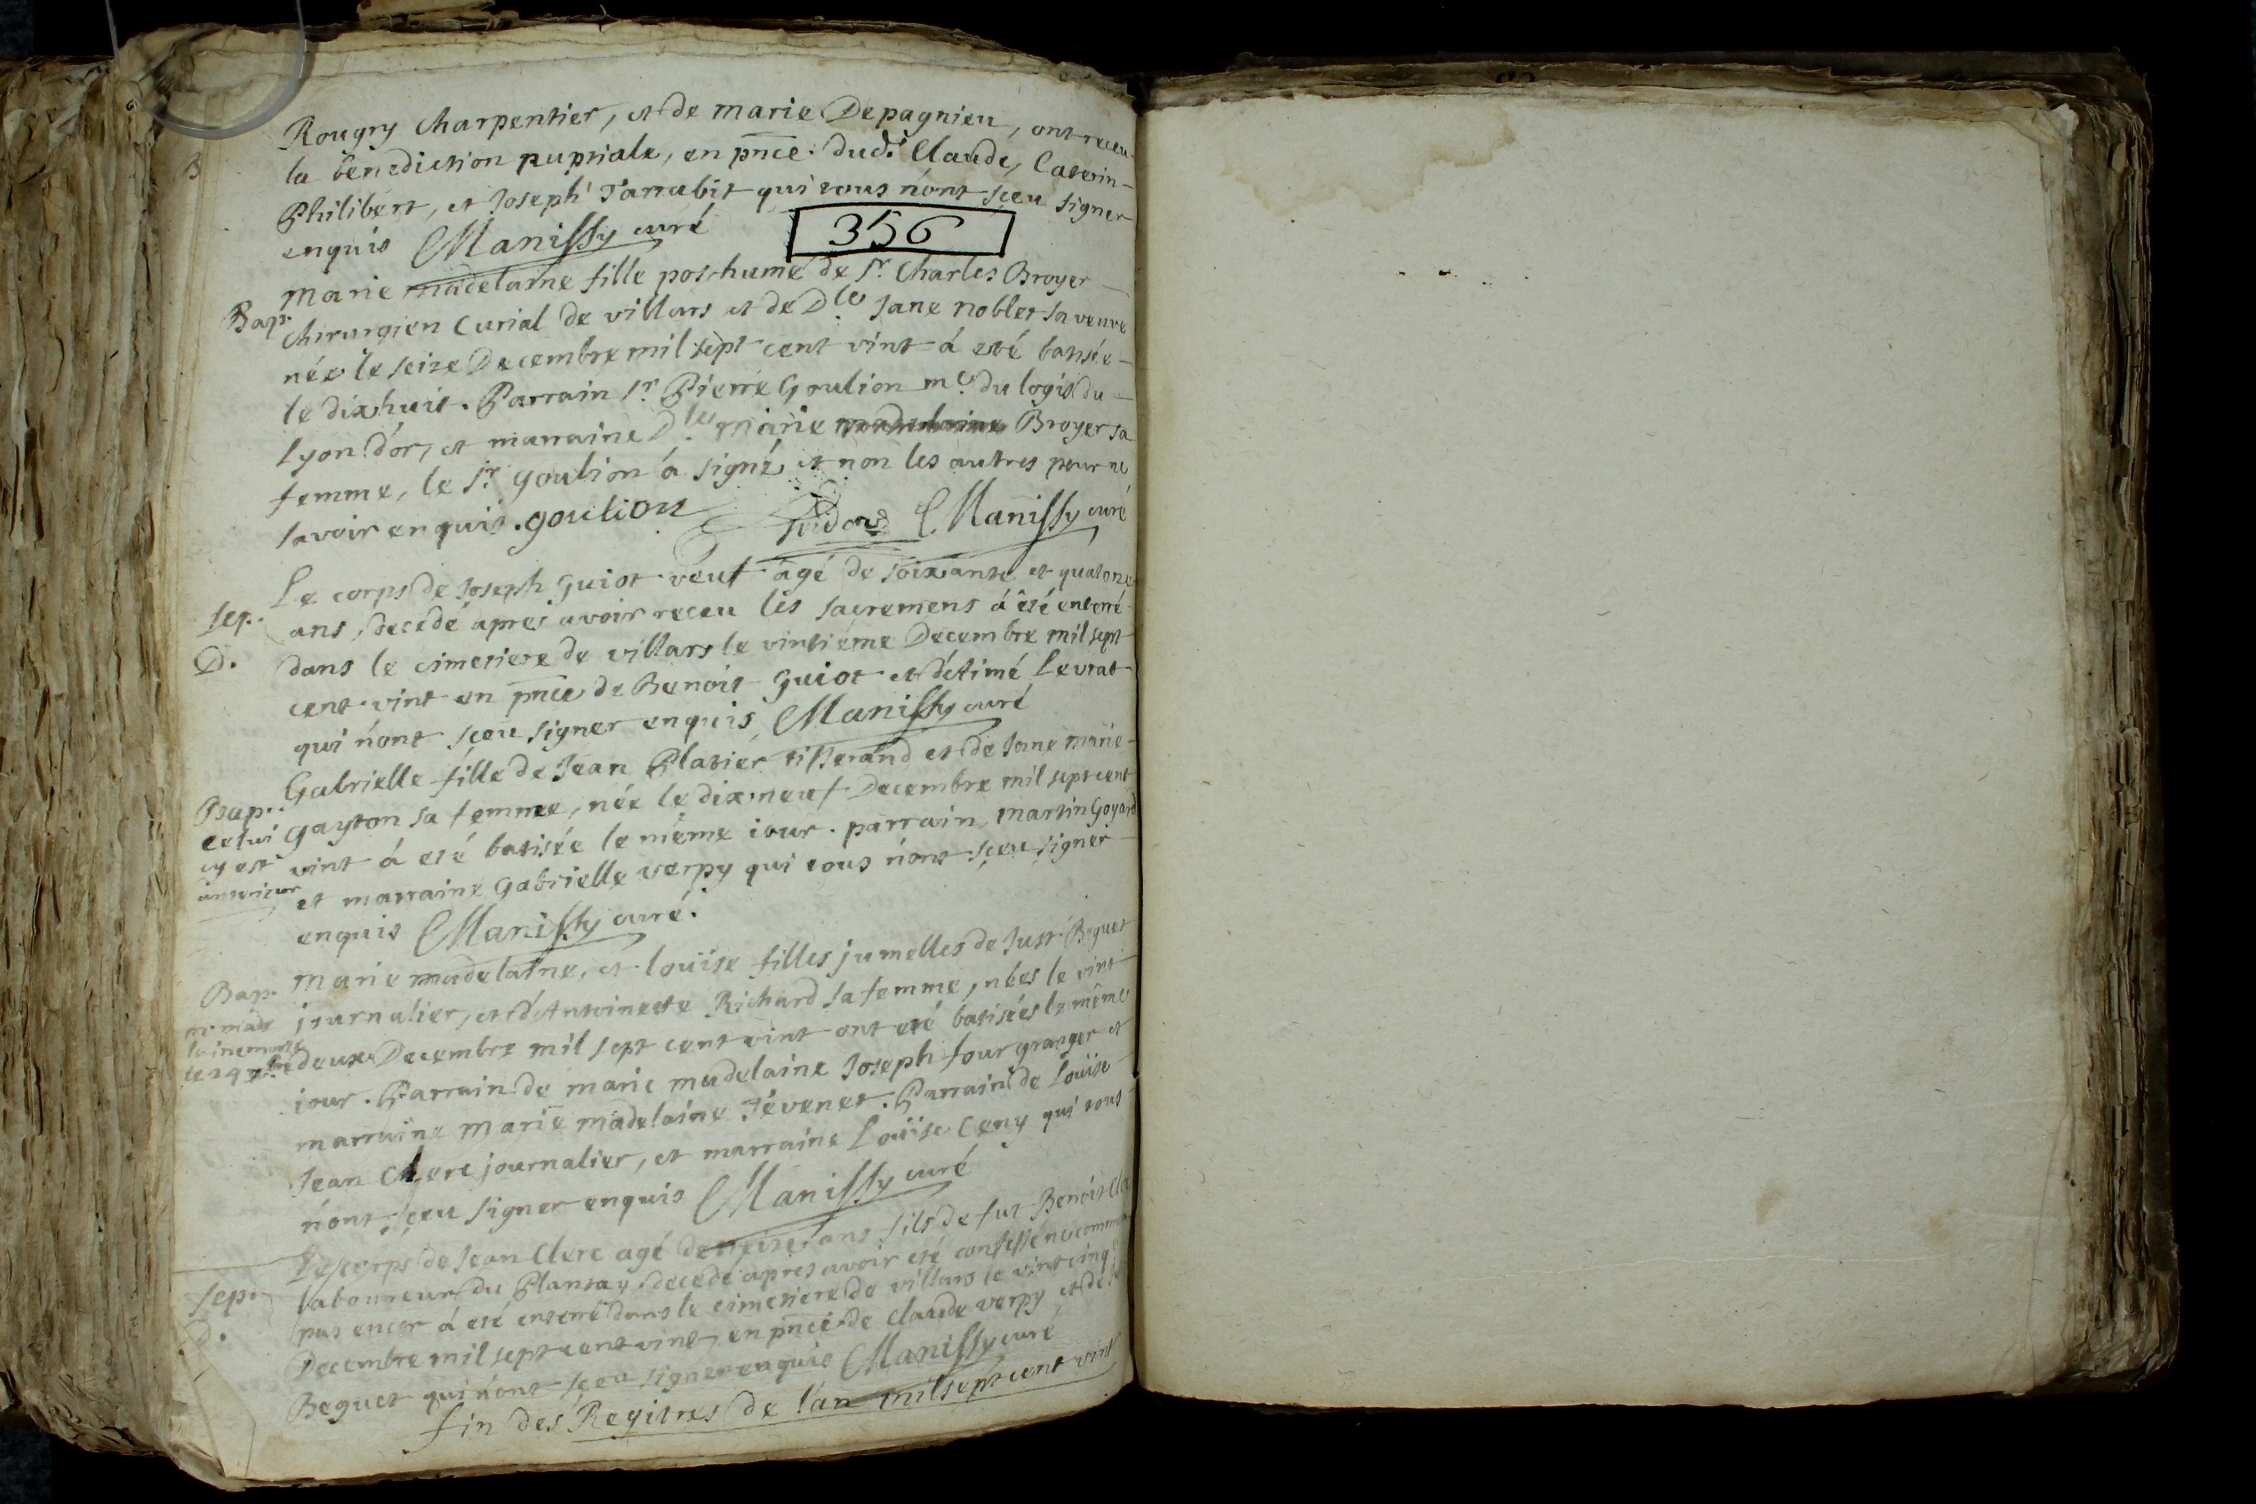 Rougry charpentier, et de marie Depagnieu, ont receu
la benediction nuptiale, en pnce. dudt. Claude, Caterin
Philibert, et Joseph Tarrabit qui tous n'ont sçeu signer
enquis Manissy curé
356
Bap. Marie madelaine fille posthume de Sr. Charles Broyer
chirurgien Curial de villars et de Dle. Jane noblet sa veuve
née le seize Decembre mil sept cent vint á eté batisée
le dix huit. Parrain Sr. Pierre Goulion me. du logis du
Lyon d'or, et marraine Dle. Marie madelaine Broyer sa
femme, le Sr. goulion á signé et non les autres pour ne
savoir enquis. goulion Manissy curé
Sep. Le corps de Joseph Guiot veuf agé de soixante et quatorze
D. ans decedé apres avoir receu les sacremens á eté enterré
dans le cimetiere de villars le vintiéme Decembre mil sept
cent vint en pnce de Benoit Guiot et d'étimé Levrat
qui n'ont sceu signer enquis Manissy curé
Bap. Gabrielle fille de Jean Platier tisserand et de Jane marie
celui gayton sa femme, née le dix neuf Decembre mil sept cent
cy est vint á eté batisée le même iour. parrain martin Goyard
anterieur et marraine Gabrielle verpy qui tous n'ont sçeu signer
enquis Manissy curé.
Bap. Marie madelaine, et louïse filles jumelles de Just Beguet
m. made journalier, et d'Antoinette Richard sa femme, nées le vint
laine morte deux Decembre mil sept cent vint ont eté batisées le même
le 24 iour. Parrain de marie madelaine Joseph four granger et
marraine Marie madelaine Tévenet. Parrain de Louïse
Jean Clerc journalier, et marraine Louïse Ceny qui tous
n'ont sçeu signer enquis Manissy curé
Sep. Le corps de Jean Clerc agé de treize ans fils de fut Benoit
D. laboureur du Plantay decedé apres avoir eté confessé ne
pas encor á eté enterré dans le cimetiere de villars le vint cinq
Decembre mil sept cent vint, en pnce de Claude verpy et de
Beguet qui n'ont sçeu signer enquis Manissy curé
fin des Regitres de l'an mil sept cent vint